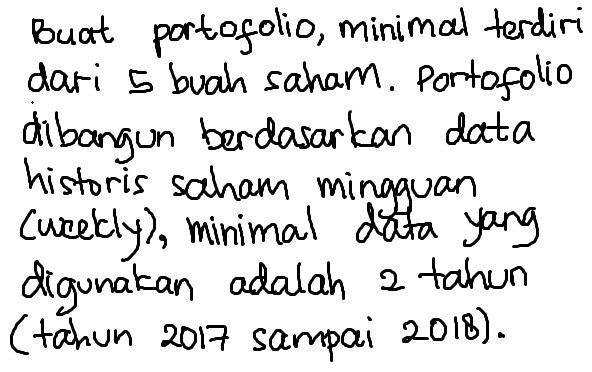 Buat portofolio, minimal terdiri
dari 5 buah saham. Portofolio
dibangun berdasarkan data
historis saham mingguan
(weekly), minimal data yang
digunakan adalah 2 tahun
(tahun 2017 sampai 2018).